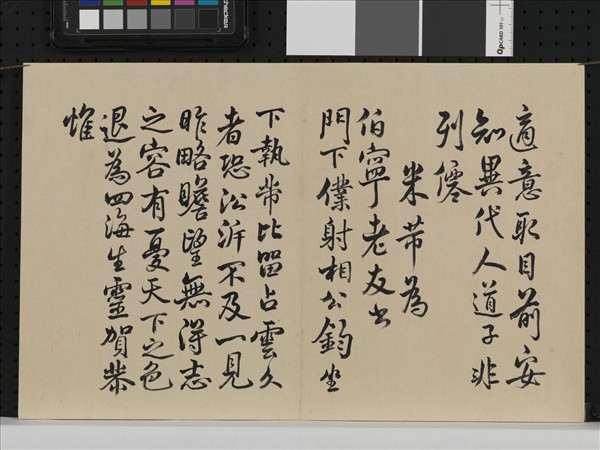 適意取目前安
知異代人道子非
列僊
米芾為
伯寧老友書
門下僕射相公鈞坐
下執芾比留占雲久
者恐沿泝不及一見
昨略瞻望無得志
之容有憂天下之色
退為四海生靈賀恭
惟
checker
QpCARD 101